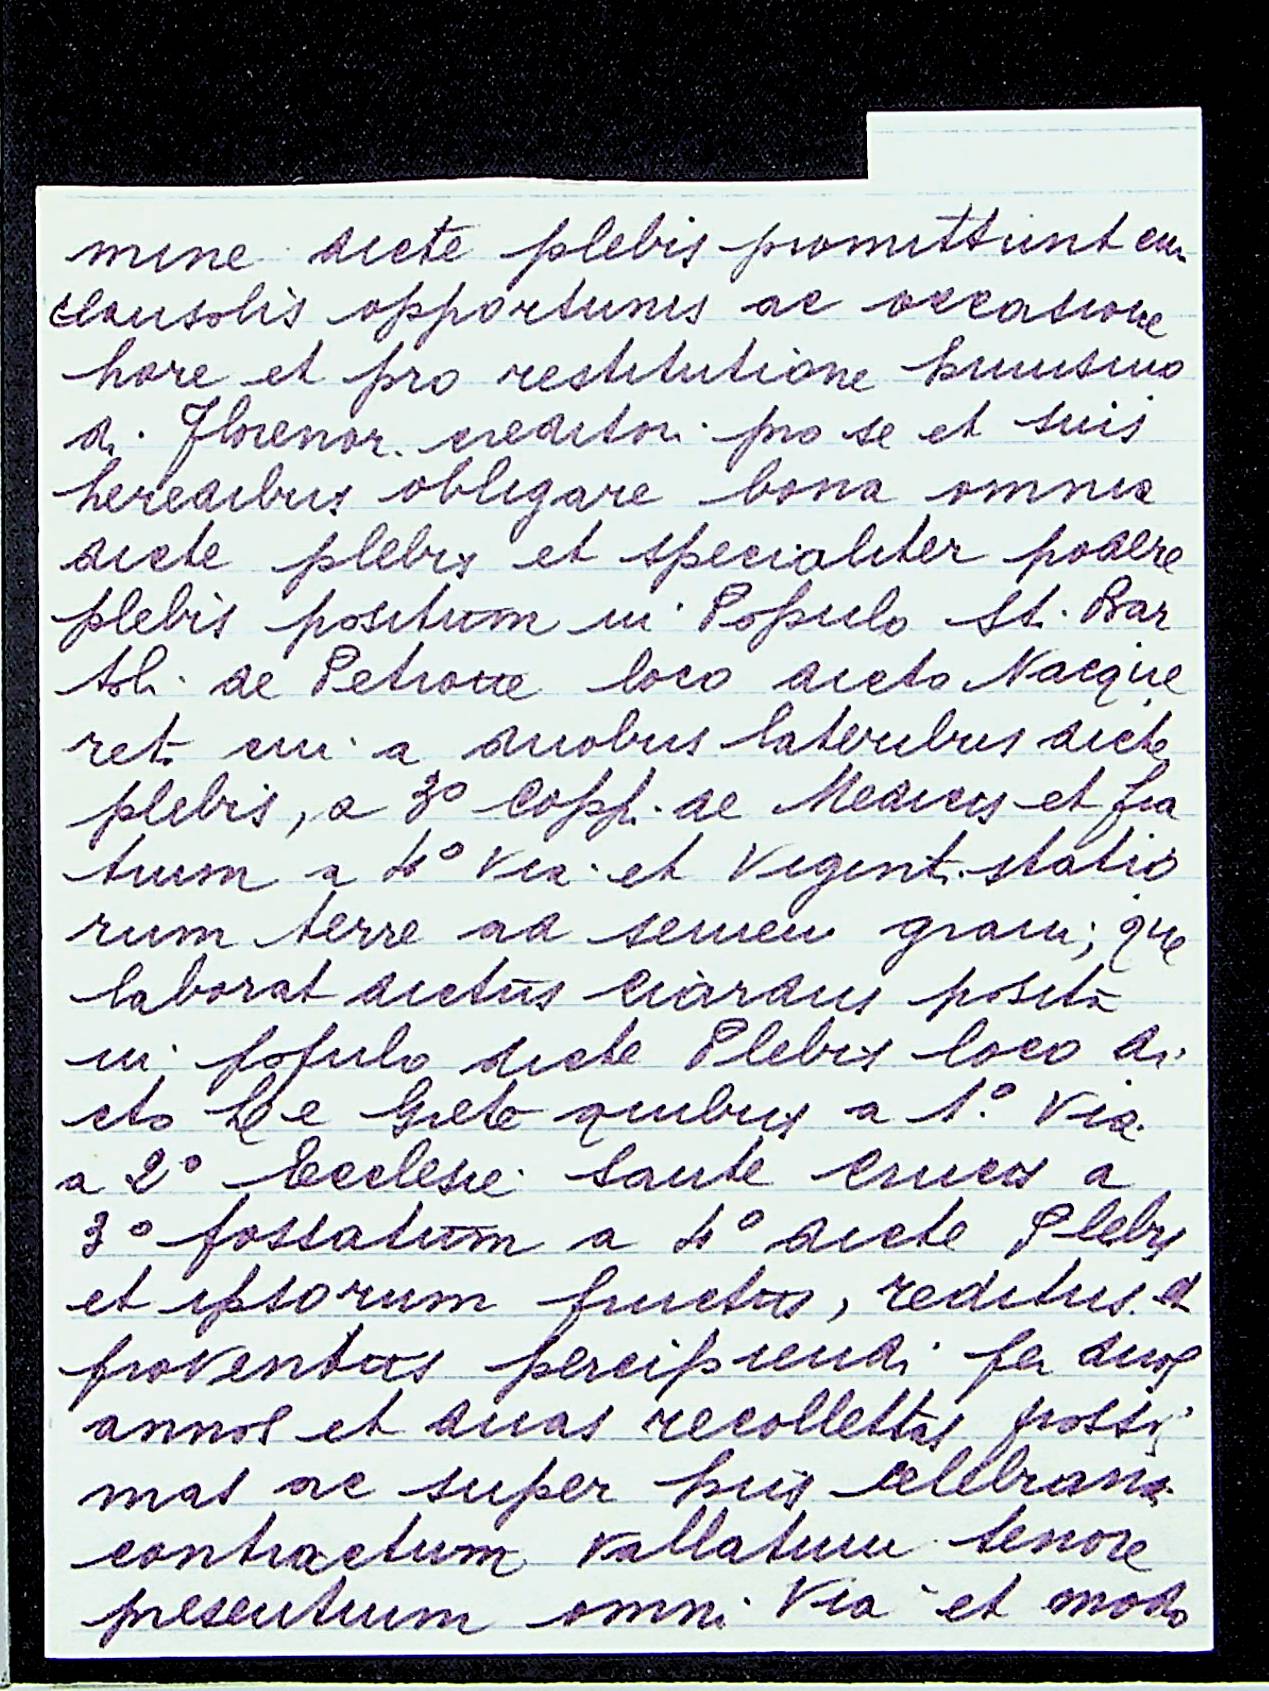 mine dicte plebis promittunt cu.
clausolis opportunis ac occasione
hore et pro restitutione huiusmo
di. Florenor. creditori pro se et suis
heredibus obligare bona omnia
dicte plebis et specialiter podere
plebis positum in Populo Sti. Bar
toli de Petrone loco dicto Nacque
ret. cui a duobus lateribus dicte
plebis, a 3º Copp. de Medicis et fra
trum a 4º Via et Vigent. statio
rum terre ad semen grani; que
laborat dictus Ciardus posita
in populo dicte Plebis loco di
cto Le Grete quibus a 1.º Via
a 2º Ecclesie Sante Crucis a
3º fossatum a 4º dicte Plebis
et ipsorum fructus, reditus et
proventus percipiendi per duos
annos et duas recolletta
mas ac super hiis celebrand
contractum vallatum tenore
presentium omni Via et modo